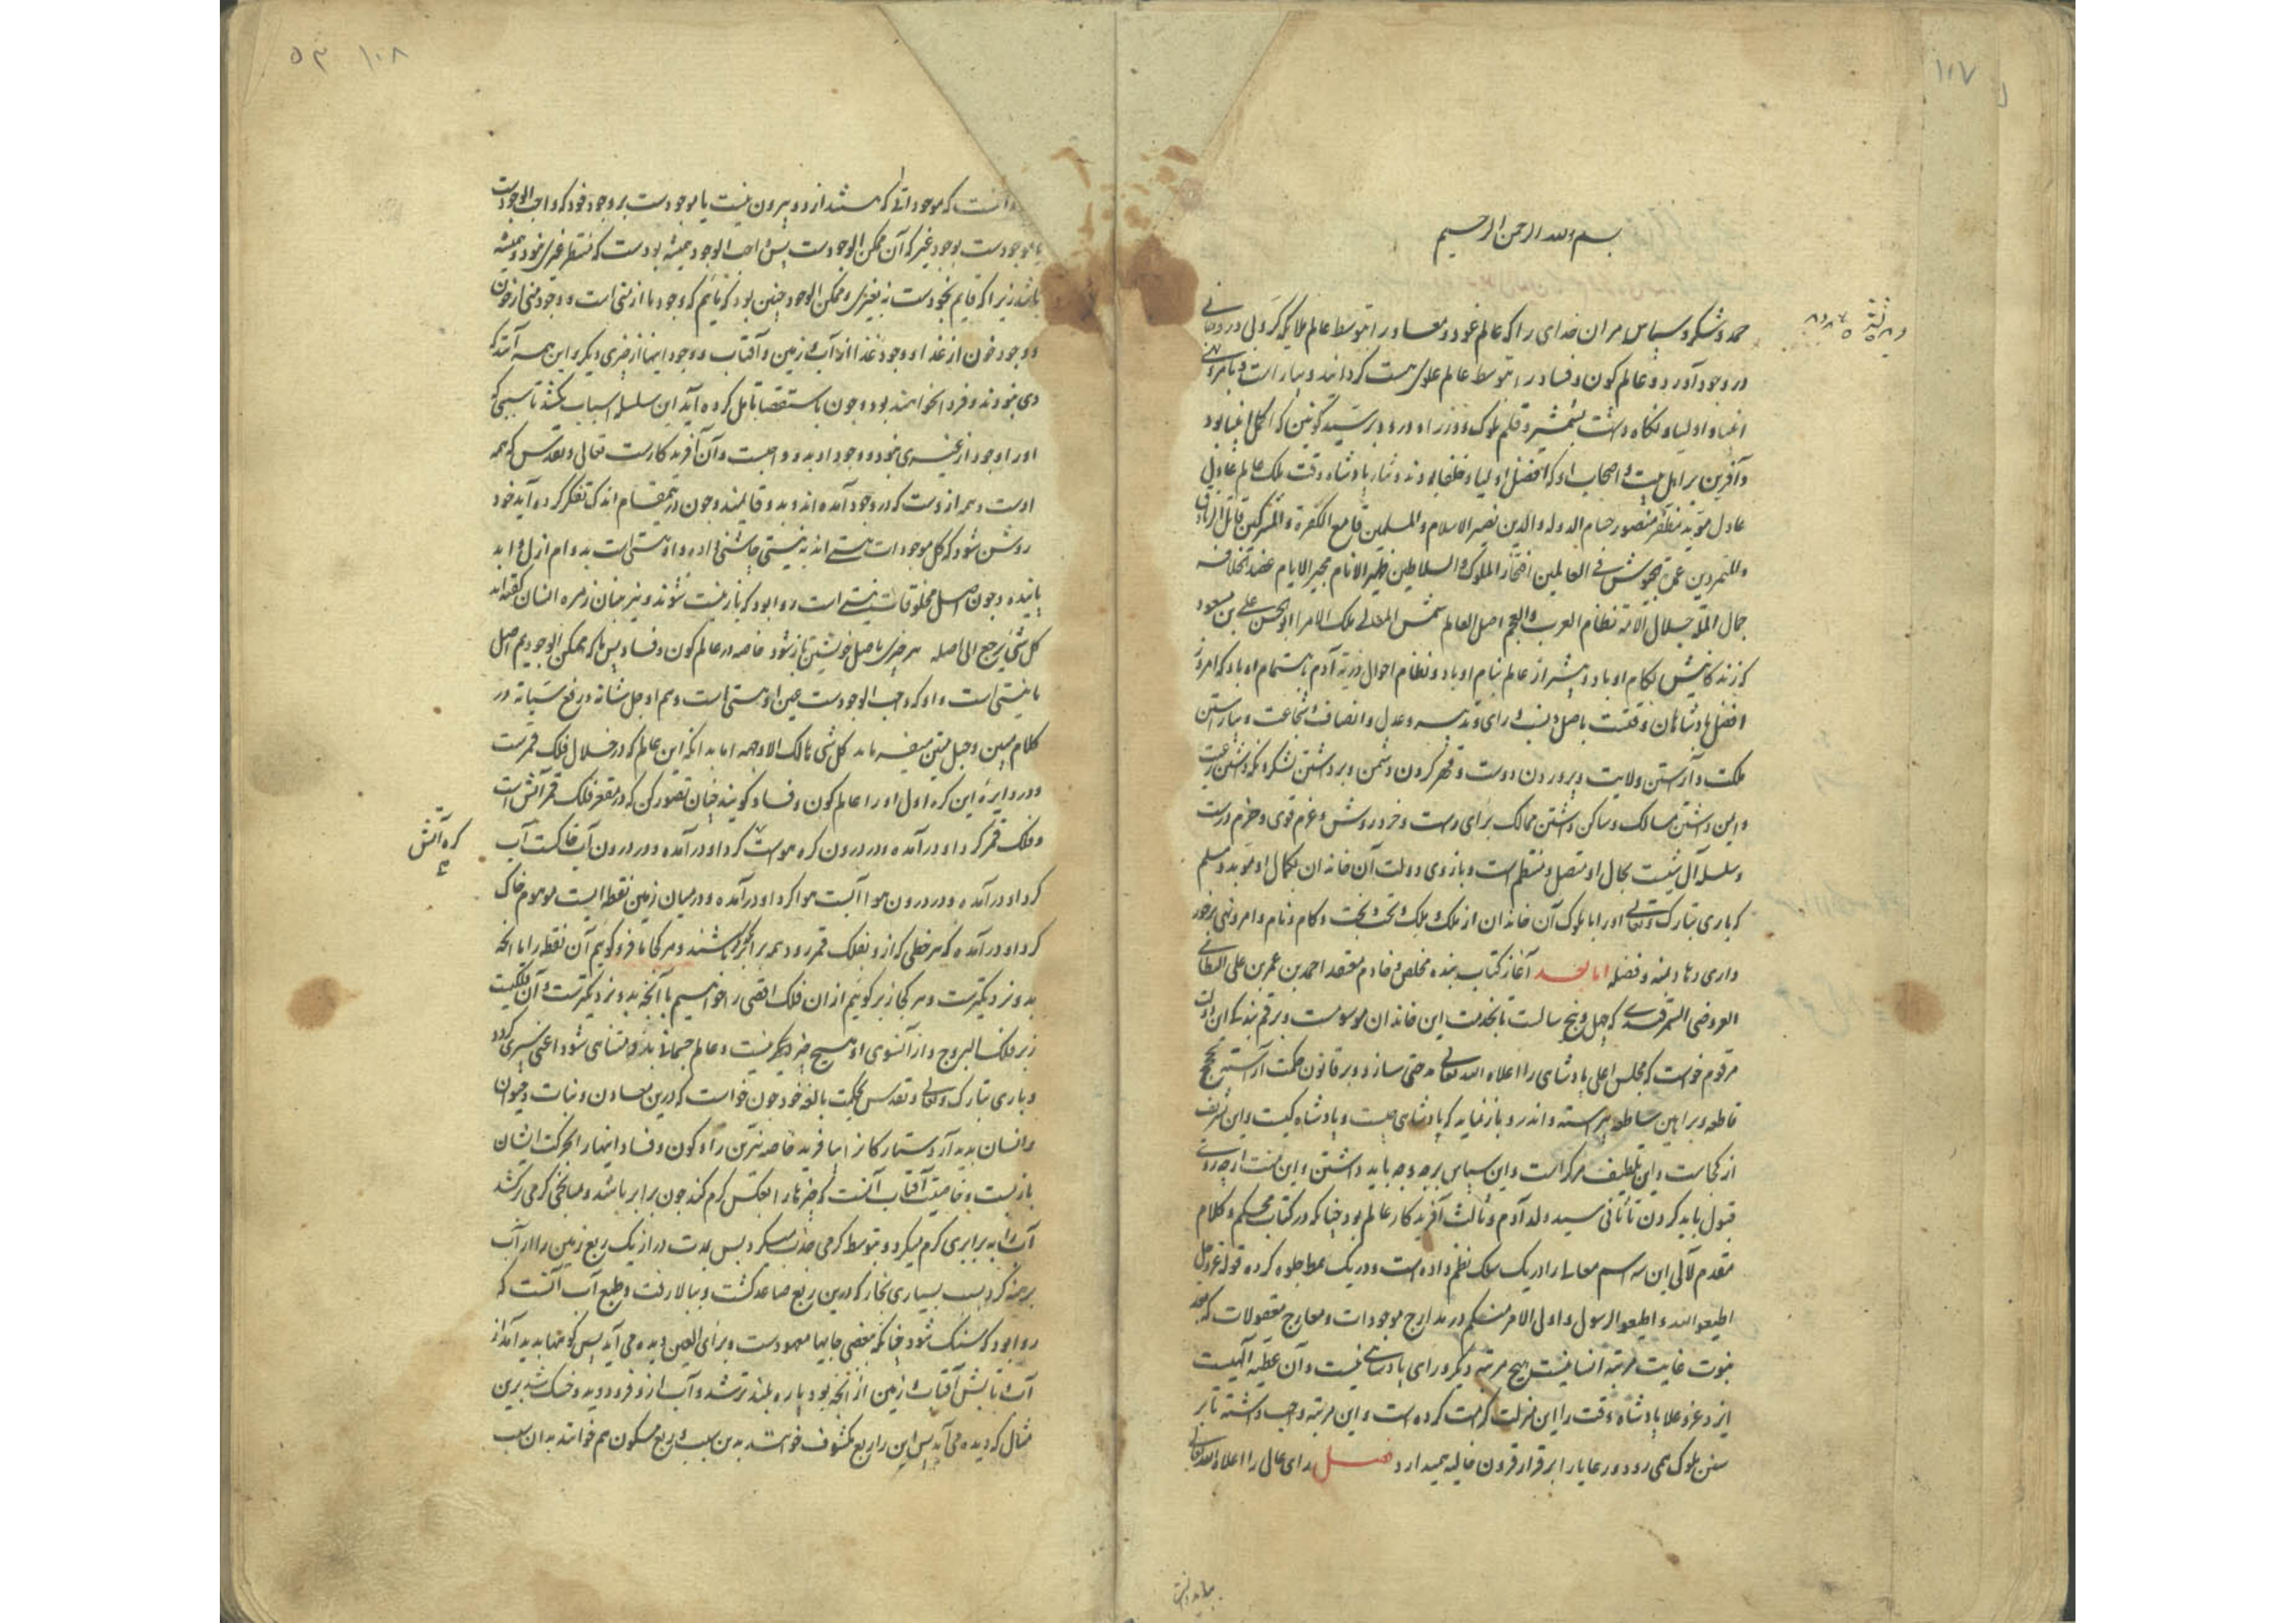 ۱۰۷
بسم الله الرحمن الرحیم
حمد و شکر و سپاس مران خدای را که عالم عود و معاد را بتوسط عالم ملایکه کروبی و روحانی
در وجود آورد و عالم کون و فساد را بتوسط عالم علوی هست گردانید و بیاراست و بامر و نهی
انبیا و اولیا و نگاه داشت بشمشیر و قلم ملوک و وزرا و درود بر سید کونین که اکمل انبیا بود
و آفرین بر اهل بیت و اصحاب او که افضل اولیا و خلفا بودند و ثنا بر پادشاه وقت ملک عالم عادل
عادل موید مظفر منصور حسام الدوله والدین نصیر الاسلام والمسلمین قامع الکفرة والمشرکین قاتل الزنادق
والمتمردین عمدة الجیوش فی العالمین افتخار الملوک والسلاطین ظهیر الانام مجیر الایام عضد الخلافه
جمال المله جلال الامه نظام العرب والعجم اصل العالم شمس المعالی ملک الامرا ابوالحسن علی بن مسعود
که زندگانیش بکام او باد و بیشتر از عالم بنام او باد و نظام احوال ذریه آدم باهتمام او باد که امروز
افضل پادشاهان وقتست باصل و نسب و رای و تدبیر و عدل و انصاف و شجاعت و بیاراستن
ملکت و آراستن ولایت و پروردن دوست و قهر کردن دشمن و برداشتن لشکر و نگه داشتن رعیت
و ایمن داشتن مسالک و ساکن داشتن ممالک برای راست و خرد روشن و عزم قوی و حزم درست
و سلسله آل شنسب بجمال او متصل و منتظم است و بازوی دولت آن خاندان بکمال او موید و مسلم
که باری تبارک و تعالی او را با ملوک آن خاندان از ملک و ملک و تخت و بخت و کام و نام و امر و نهی برخور
داری دهاد بمنه و فضله اما بعد آغاز کتاب بنده مخلص و خادم معتقد احمد بن عمر بن علی النظامی
العروضی السمرقندی که چهل و پنج سالست تا بخدمت این خاندان موسومست و برقم بندگی ان دولت
مرقوم خواست که مجلس اعلی پادشاهی را اعلاه الله تعالی خدمتی سازد و بر قانون حکمت آراسته بحجج
قاطعه و براهین ساطعه پیراسته و اندر و باز نماید که پادشاهی چیست و پادشاه کیست و این تشریف
از کجاست و این تلطیف مر کراست و این سپاس بر چه وجه باید داشتن و این منت از چه روی
قبول باید کردن تا ثانی سید ولد آدم و ثالث آفریدگار عالم بود چنانکه در کتاب محکم و کلام
متقدم لآلی این سه اسم معالی را در یک سلک نظم داده است و در یک سمط جلوه کرده قوله عز و جل
اطیعوا الله و اطیعوا الرسول و اولی الامر منکم در مدارج موجودات و معارج معقولات که بعد
نبوت غایت مرتبه انسانیست هیچ مرتبه دیگر ورای پادشاهی نیست و آن عطیه الهیست
ایزد عز و علا پادشاه وقت را این منزلت کرامت کرده است و این مرتبه واجب داشته تا بر
سنن ملوک همی رود و رعایا را بر قرار قرون خالیه همیدارد فصل رای عالی را اعلاه الله تعالی
بباید دانستن
۵۳ ۱۰۸
آنست که موجوداتی که هستند از دو بیرون نیست یا موجودست بر وجود خود که واجب الوجودست
یا موجودست بوجود غیر که آن ممکن الوجودست پس واجب الوجود همیشه بودست که منتظر غیری نبود و همیشه
باشد زیرا که قایم بخودست نه بغیری و ممکن الوجود چنین بود که ماییم که وجود ما از منی است و وجود منی از خون
و وجود خون از غذا و وجود غذا از آب و زمین و آفتاب و وجود اینها از چیزی دیگر و این همه آنند که
دی نبودند و فردا نخواهند بود و چون باستقصا تامل کرده آید این سلسله اسباب بکشد تا سببی که
او را وجود از غیری نبود و وجود او بدو واجبست و آن آفریدگارست تعالی و تقدس که همه
اوست و همه ازوست که در وجود آمده اند و بدو قایمند و چون درین مقام اندک تفکر کرده آید خود
روشن شود که کل موجودات هستی اند به نیستی چاشنی داده و او هستی است بدوام ازل و ابد
پاینده و چون اصل مخلوقات نیستی است روا بود که باز نیست شوند و تیزبینان زمره انسان گفته اند
کل شی یرجع الی اصله هر چیزی باصل خویشتن باز شود خاصه در عالم کون و فساد پس ما که ممکن الوجودیم اصل
ما نیستی است و او که واجب الوجودست عین او هستی است و هم او جل ثناؤه و رفع سناؤه در
کلام مبین و حبل متین میفرماید کل شی هالک الا وجهه اما بدانکه این عالم که در خلال فلک قمرست
و در دایره این کره اول او را عالم کون و فساد گویند چنان تصور کن که در مقعر فلک قمر آتش است
و فلک قمر گرد او درآمده و در درون کره هواست گرد او درآمده و در درون آب خاکست آب
گرد او درآمده و در درون هوا آبست هوا گرد او درآمده و در میان زمین نقطه ایست موهوم خاک
گرد او درآمده که هر خطی که ازو بفلک قمر رود همه برابر یکدیگر باشند و هر کجا ما فرو گوییم آن نقطه را یا انچه
بدو نزدیکترست و هر کجا زبر گوییم از آن فلک اقصی را خواهیم یا آنچه بدو نزدیکترست و آن فلکیست
زبر فلک البروج و از آنسوی او هیچ چیز دیگر نیست و عالم جسمانی بدو متناهی شود اعنی سپری گردد
و باری تبارک و تعالی و تقدس بحکمت بالغه خود چون خواست که درین معادن و نبات و حیوان
و انسان پدید آرد ستارگان را بیافرید خاصه نیرین را و کون و فساد اینها را بحرکت ایشان
باز بست و خاصیت آفتاب آنست که چیزها را بعکس گرم کند چون برابر باشد و بمیانجی گرمی برکشد
آب را به برابری گرم میکرد و بتوسط گرمی جذب میکرد پس بمدت دراز یک ربع زمین را از آب
برهنه کرد بسبب بسیاری بخار که درین ربع صاعد گشت و ببالا رفت و طبع آب آنست که
روا بود که سنگ شود چنانکه ببعضی جایها معهودست و برای العین دیده می آید پس کوهها پدید آمد از
آب بتابش آفتاب و زمین از آنچه بود پاره بلندتر شد و آب ازو فرو دوید و خشک شد برین
مثال که دیده می آید پس این را ربع مکشوف خوانند بدین سبب و ربع مسکون هم خوانند بدان سبب
کره آتش